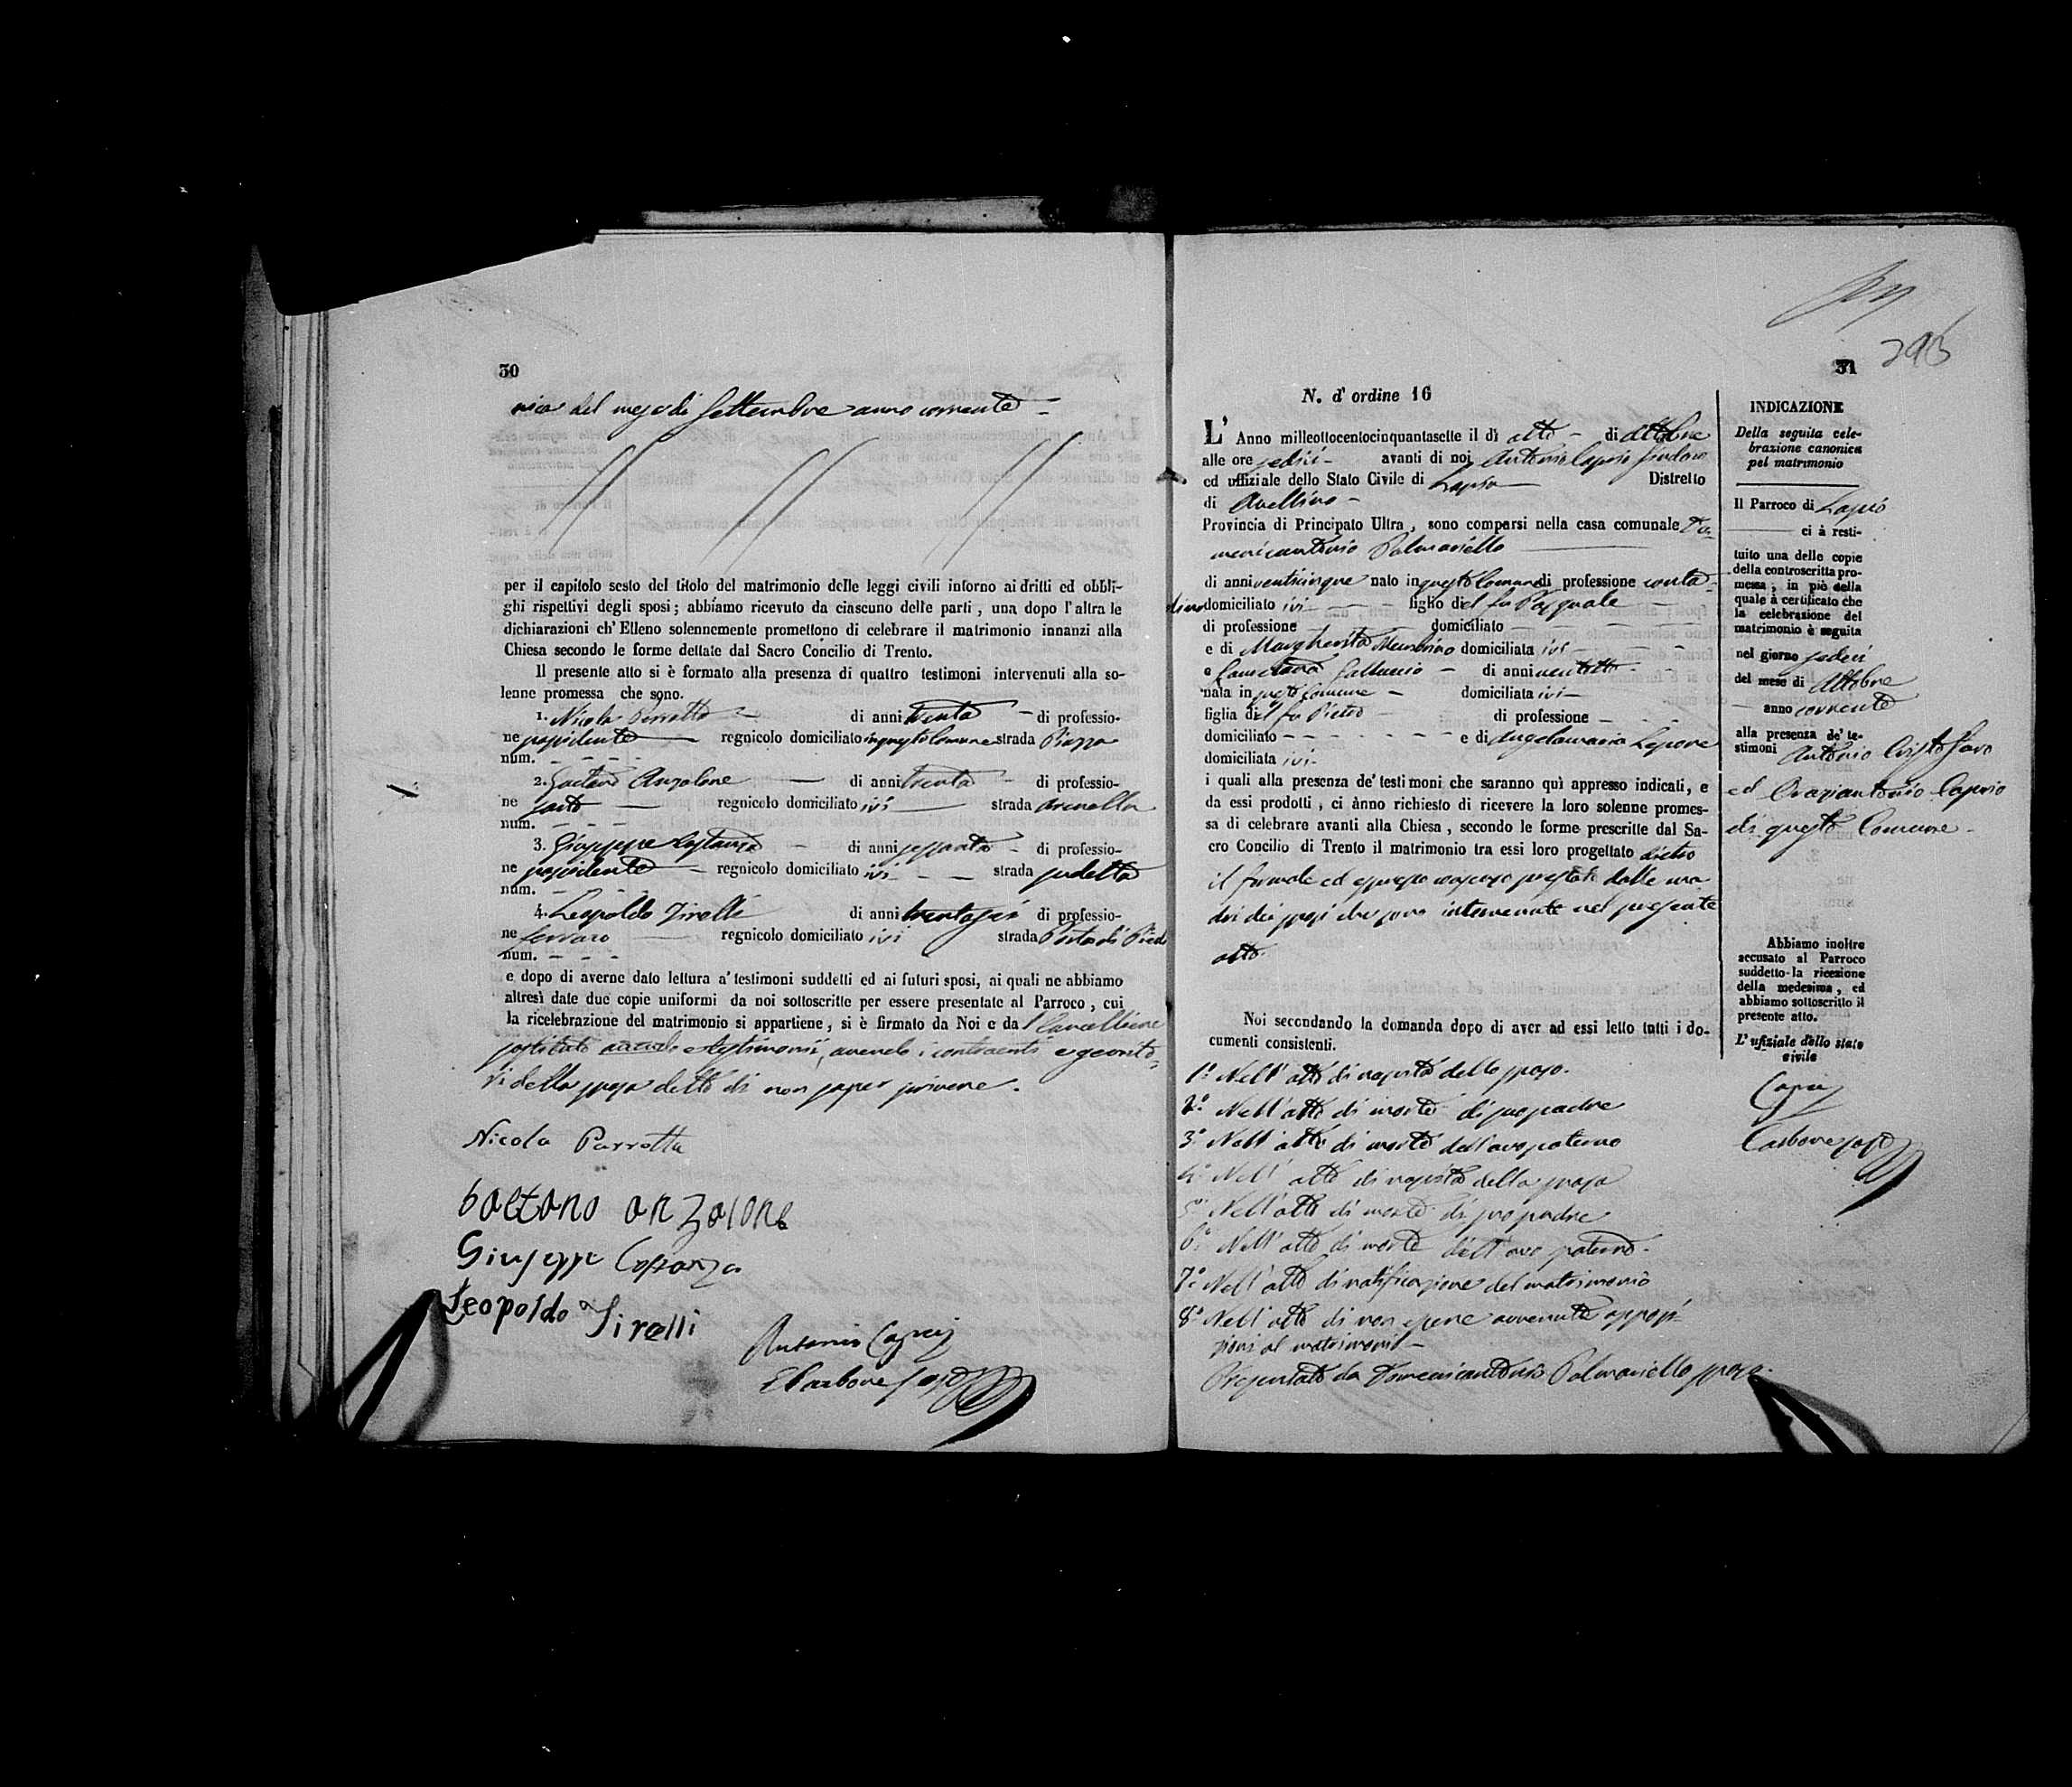 30
nica del mese di Settembre anno corrente
per il capitolo sesto del titolo del matrimonio delle leggi civili intorno ai dritti ed obbli-
ghi rispettivi degli sposi; abbiamo ricevuto da ciascuno delle parti, una dopo l'altra le
dichiarazioni ch'Elleno solennemente promettono di celebrare il matrimonio innanzi alla
Chiesa secondo le forme dettate dal Sacro Concilio di Trento.
Il presente atto si è formato alla presenza di quattro testimoni intervenuti alla so-
lenne promessa che sono.
1. Nicola Parrotta di anni trenta di professio-
ne possidente regnicolo domiciliato in questo Comune strada Piazza
num.
2. Gaetano Anzalone di anni trenta di professio-
ne sarto regnicolo domiciliato ivi strada
num.
3. Giuseppe Costanza di anni sessanta di professio-
ne possidente regnicolo domiciliato ivi strada
num.
4. Leopoldo Tirelli di anni trentasei di professio-
ne ferraro regnicolo domiciliato ivi strada
num.
e dopo di averne dato lettura a' testimoni suddetti ed ai futuri sposi, ai quali ne abbiamo
altresì date due copie uniformi da noi sottoscritte per essere presentate al Parroco, cui
la ricelebrazione del matrimonio si appartiene, si è firmato da Noi e da Cancelliere
sostituto e testimonii, avendo i contraenti e genito-
ri della sposa detto di non saper scrivere.
Nicola Parrotta
Gaetano anzalone
Giuseppe Costanza
Leopoldo Tirelli
Antonio Caprio
Carbone sost
31
295
N. d'ordine 16
L'Anno milleottocentocinquantasette il dì otto di Ottobre
alle ore sedici avanti di noi Antonio Caprio Sindaco
ed uffiziale dello Stato Civile di Lapio Distretto
di Avellino
Provincia di Principato Ultra, sono comparsi nella casa comunale Do-
menicantonio Palmariello
di anni venticinque nato in questo Comune di professione conta-
dino domiciliato ivi figlio del fu Pasquale
di professione domiciliato
e di Margherita domiciliata ivi
e Gaetana Galluccio di anni ventotto
nata in questo Comune domiciliata ivi
figlia del fu Pietro di professione
domiciliato e di Angelamaria Lepore
domiciliata ivi
i quali alla presenza de' testimoni che saranno quì appresso indicati, e
da essi prodotti, ci ànno richiesto di ricevere la loro solenne promes-
sa di celebrare avanti alla Chiesa, secondo le forme prescritte dal Sa-
cro Concilio di Trento il matrimonio tra essi loro progettato dietro
il formale ed espresso consenso prestato dalle ma-
dri dei sposi che sono intervenute nel presente
atto.
Noi secondando la domanda dopo di aver ad essi letto tutti i do-
cumenti consistenti.
1.° Nell'atto di nascita dello sposo.
2.° Nell'atto di morte di suo padre
3.° Nell'atto di morte dell'avo paterno
4.° Nell'atto di nascita della sposa
5.° Nell'atto di morte di suo padre
6.° Nell'atto di morte dell'avo paterno.
7.° Nell'atto di notificazione del matrimonio
8.° Nell'atto di non essere avvenute opposi-
zioni al matrimonio
Presentati da Domenicantonio Palmariello sposo.
INDICAZIONE
Della seguita cele-
brazione canonica
pel matrimonio
Il Parroco di Lapio
ci à resti-
tuito una delle copie
della controscritta pro-
messa, in piè della
quale à certificato che
la celebrazione del
matrimonio è seguita
nel giorno sedici
del mese di Ottobre
anno corrente
alla presenza de' te-
stimoni Antonio Cristofaro
ed Oraziantonio Caprio
di questo Comune
Abbiamo inoltre
accusato al Parroco
suddetto la ricezione
della medesima, ed
abbiamo sottoscritto il
presente atto.
L'ufiziale dello stato
civile
Caprio
Carbone sost